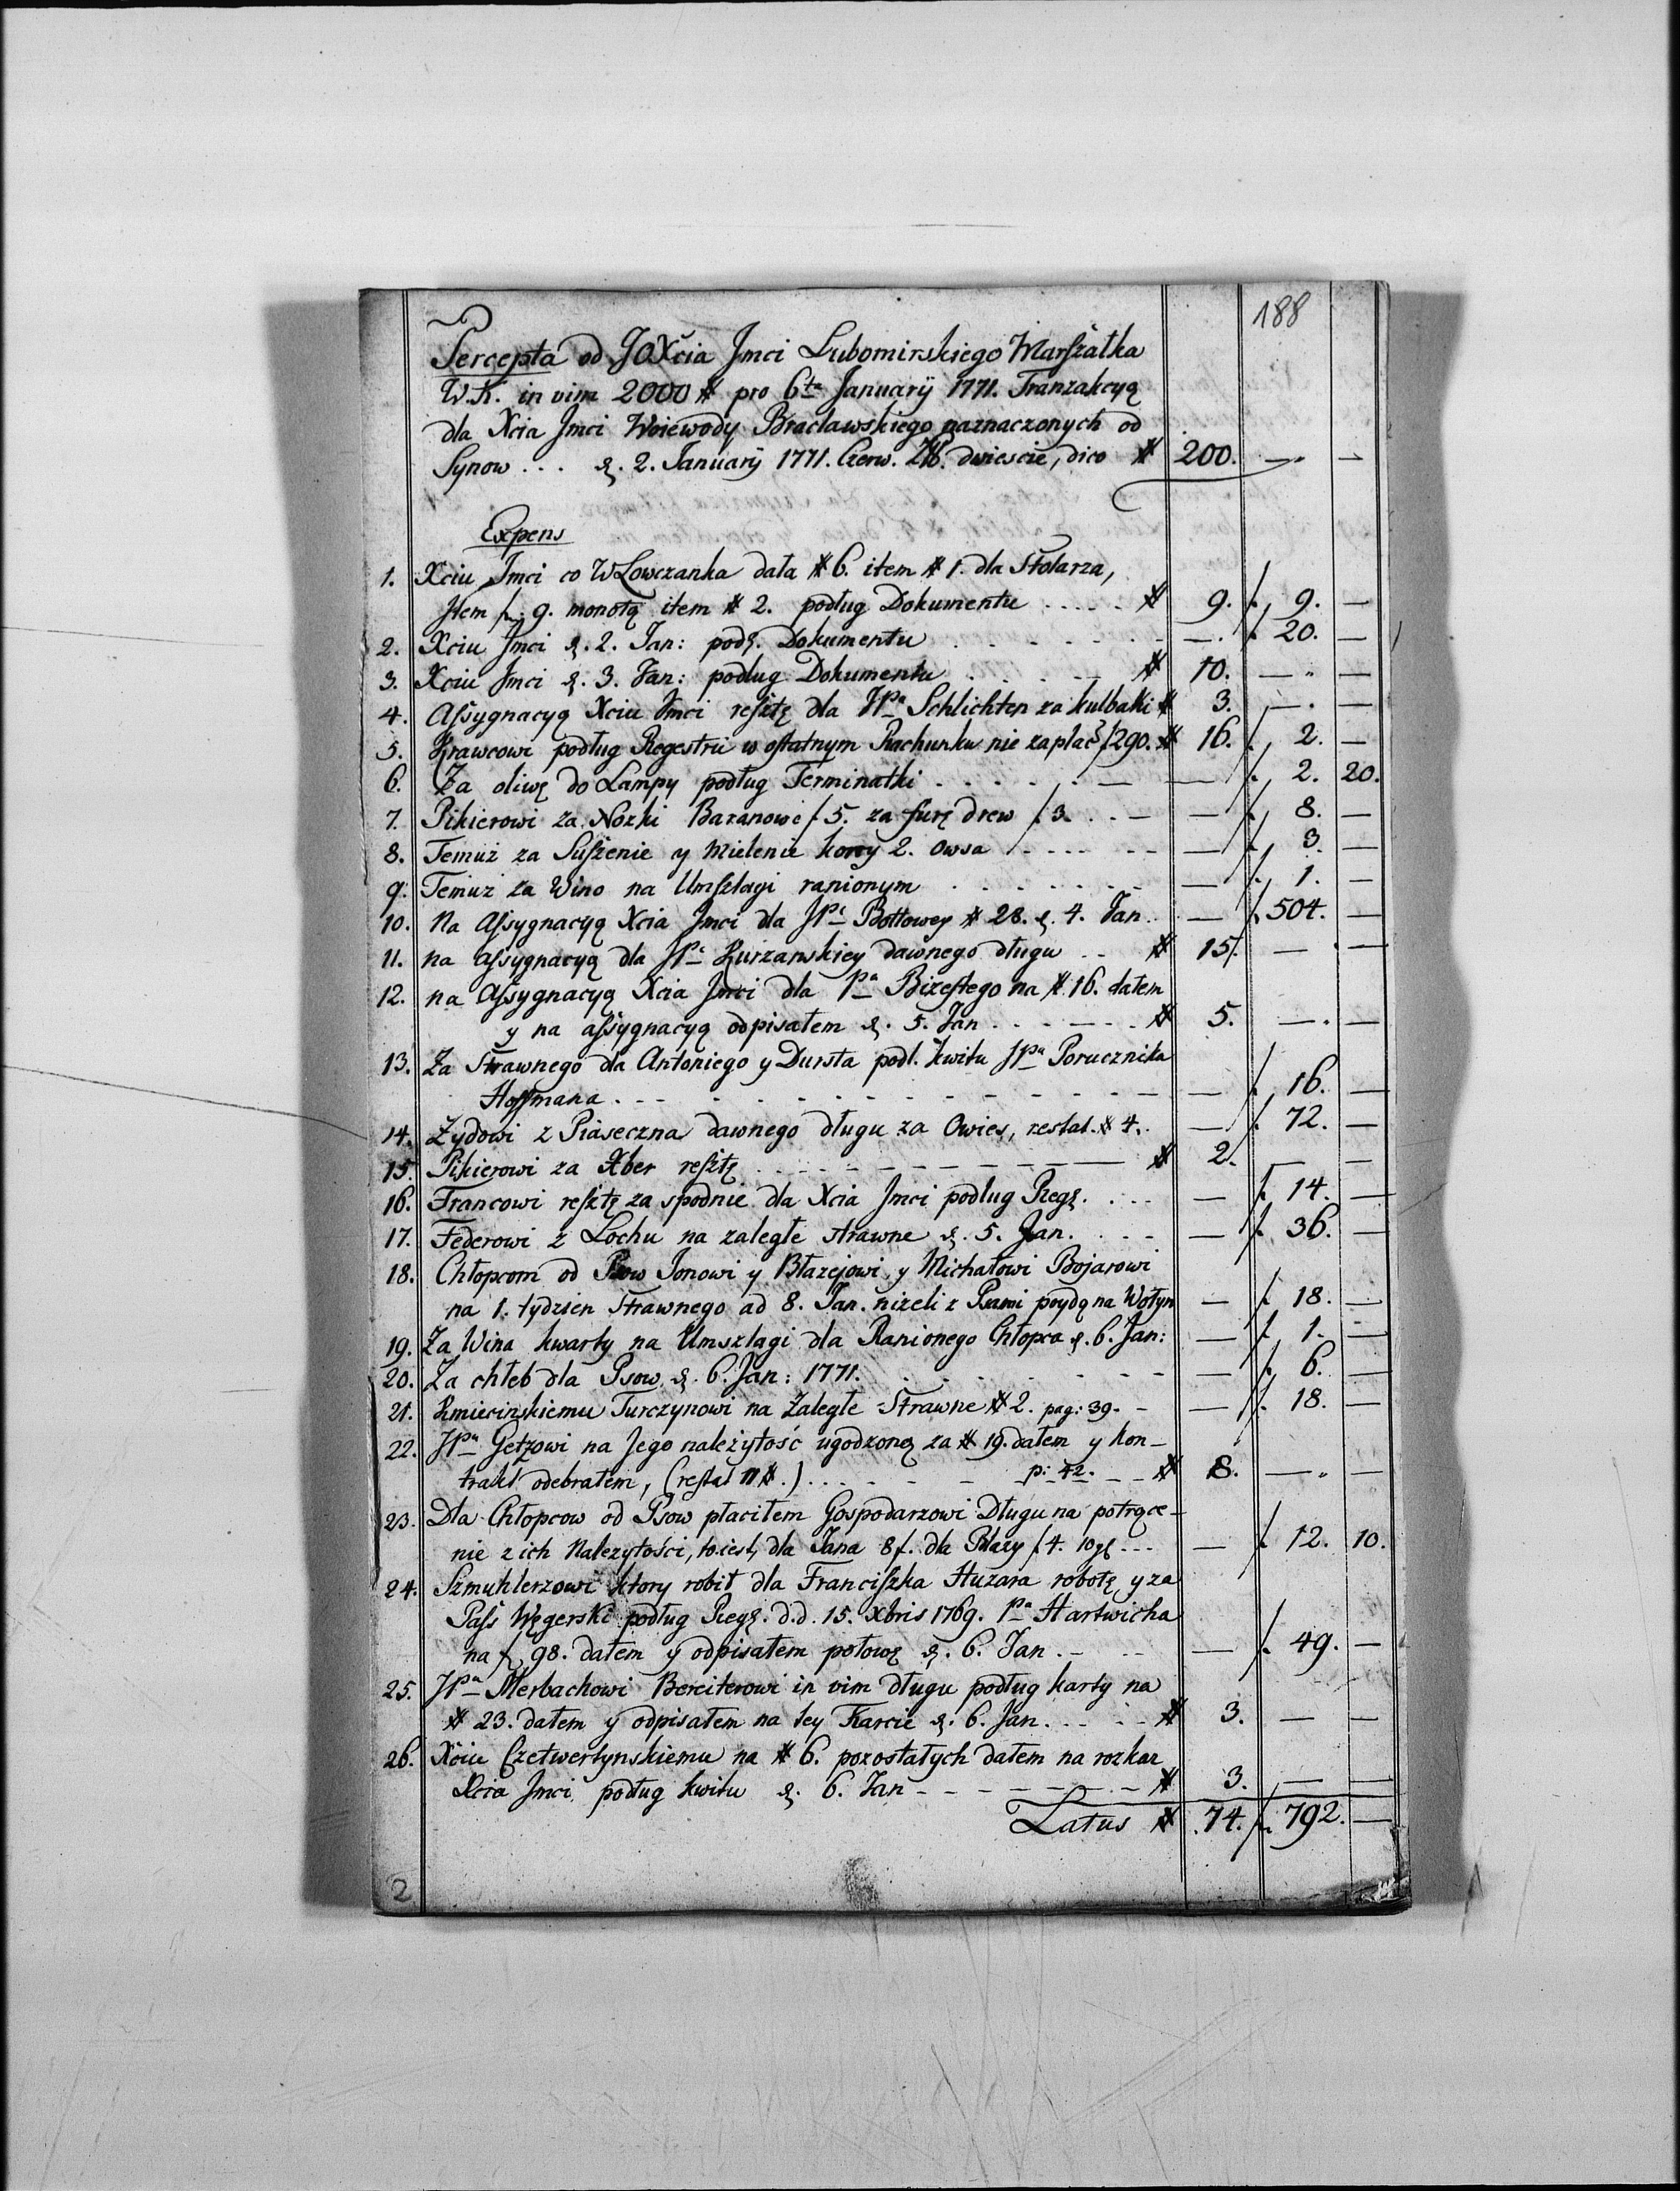 188
Percepta od JOXcia Jmci Lubomirskiego Marszałka
W.K. in vim 2000 # pro 6ta Januarij 1771. Tranzakcyą
dla Xcia Jmci Woiewody Bracławskiego naznaczonych od
Synow . . . d. 2. Januarij 1771. Czerw. Zł. dwieście, dico # 200. — —
Expens
1. Xciu Jmci co WŁowczanka dała # 6. item # 1. dla Stolarza,
Item f. 9. monetą item # 2. podług Dokumentu . . . . # 9. f. 9. —
2. Xciu Jmci d. 2. Jan: podł. Dokumentu . . . . . — f. 20. —
3. Xciu Jmci d. 3. Jan: podług Dokumentu . . . . # 10. — —
4. Assygnacyą Xciu Jmci resztę dla JPa Schlichten za kulbaki # 3. — —
5. Krawcowi podług Regestru w ostatnym Rachunku nie zapłac: f 290. # 16. f. 2. —
6. Za oliwę do Lampy podług Terminatki . . . . . — — f. 2. 20.
7. Pikierowi za Nozki Baranowe f 5. za furę drew f. 3. . . — — f. 8. —
8. Temuż za Suszenie y Mielenie korcy 2. Owsa . . . . — f. 3. —
9. Temuż za Wino na Umszlagi ranionym . . . . . . — f. 1. —
10. Na Assygnacyą Xcia Jmci dla JPi Bottowey # 28. d. 4. Jan. . — f. 504. —
11. na assygnacyą dla JPi Kurzanskiey dawnego długu . . # 15. — —
12. na Assygnacyą Xcia Jmci dla Pa Bizestego na # 16. dałem
y na assygnacyą odpisałem d. 5. Jan . . . . # 5. — —
13. Za Strawnego dla Antoniego y Dursta podł. kwitu JPa Porucznika
Hoffmana . . . . . . . . . . — f. 16. —
14. Zydowi z Piaseczna dawnego długu za Owies, restat. # 4. . — f. 72. —
15. Pikierowi za Xber resztę . . . . . . # 2. — —
16. Francowi resztę za spodnie dla Xcia Jmci podług Reg. . . . — f. 14. —
17. Federowi z Lochu na zaległe strawne d. 5. Jan. . . . — f. 36. —
18. Chłopcom od Psow Jonowi y Błazejowi y Michałowi Bojarowi
na 1. tydzien Strawnego ad 8. Jan. nizeli z Psami poydą na Wołyn — f. 18. —
19. Za Wina kwarty na Umszlagi dla Ranionego Chłopca d. 6. Jan: — f. 1. —
20. Za chleb dla Psow d. 6. Jan: 1771. . . . . . . — f. 6. —
21. Kmiecinskiemu Turczynowi na Zaległe Strawne # 2. pag: 39. - — f. 18. —
22. JPu Getzowi na Jego należytość ugodzoną za # 19. dałem y kon-
trakt odebrałem, (restat 11 #.) . . . . p: 42. - - # 8. — —
23. Dla Chłopcow od Psow płaciłem Gospodarzowi Długu na potrące-
nie z ich Nalezytości, to iest, dla Jana 8 f. dla Błazy f 4. 10 gl. . . — f. 12. 10.
24. Szmuklerzowi ktory robił dla Franciszka Huzara robotę y za
Pass Węgerski podług Reg. d.d. 15. Xbris 1769. Pa Hartwicha
na f. 98. dałem y odpisałem połowę d. 6. Jan . - . . — f. 49. —
25. JPu Merbachowi Bereiterowi in vim długu podług karty na
# 23. dałem y odpisałem na tey Karcie d. 6. Jan. . . . # 3. — —
26. Xciu Czetwertynskiemu na # 6. pozostałych dałem na rozkaz
Xcia Jmci podług kwitu d. 6. Jan - - - - # 3. — —
Latus # 74. f. 792. —
2